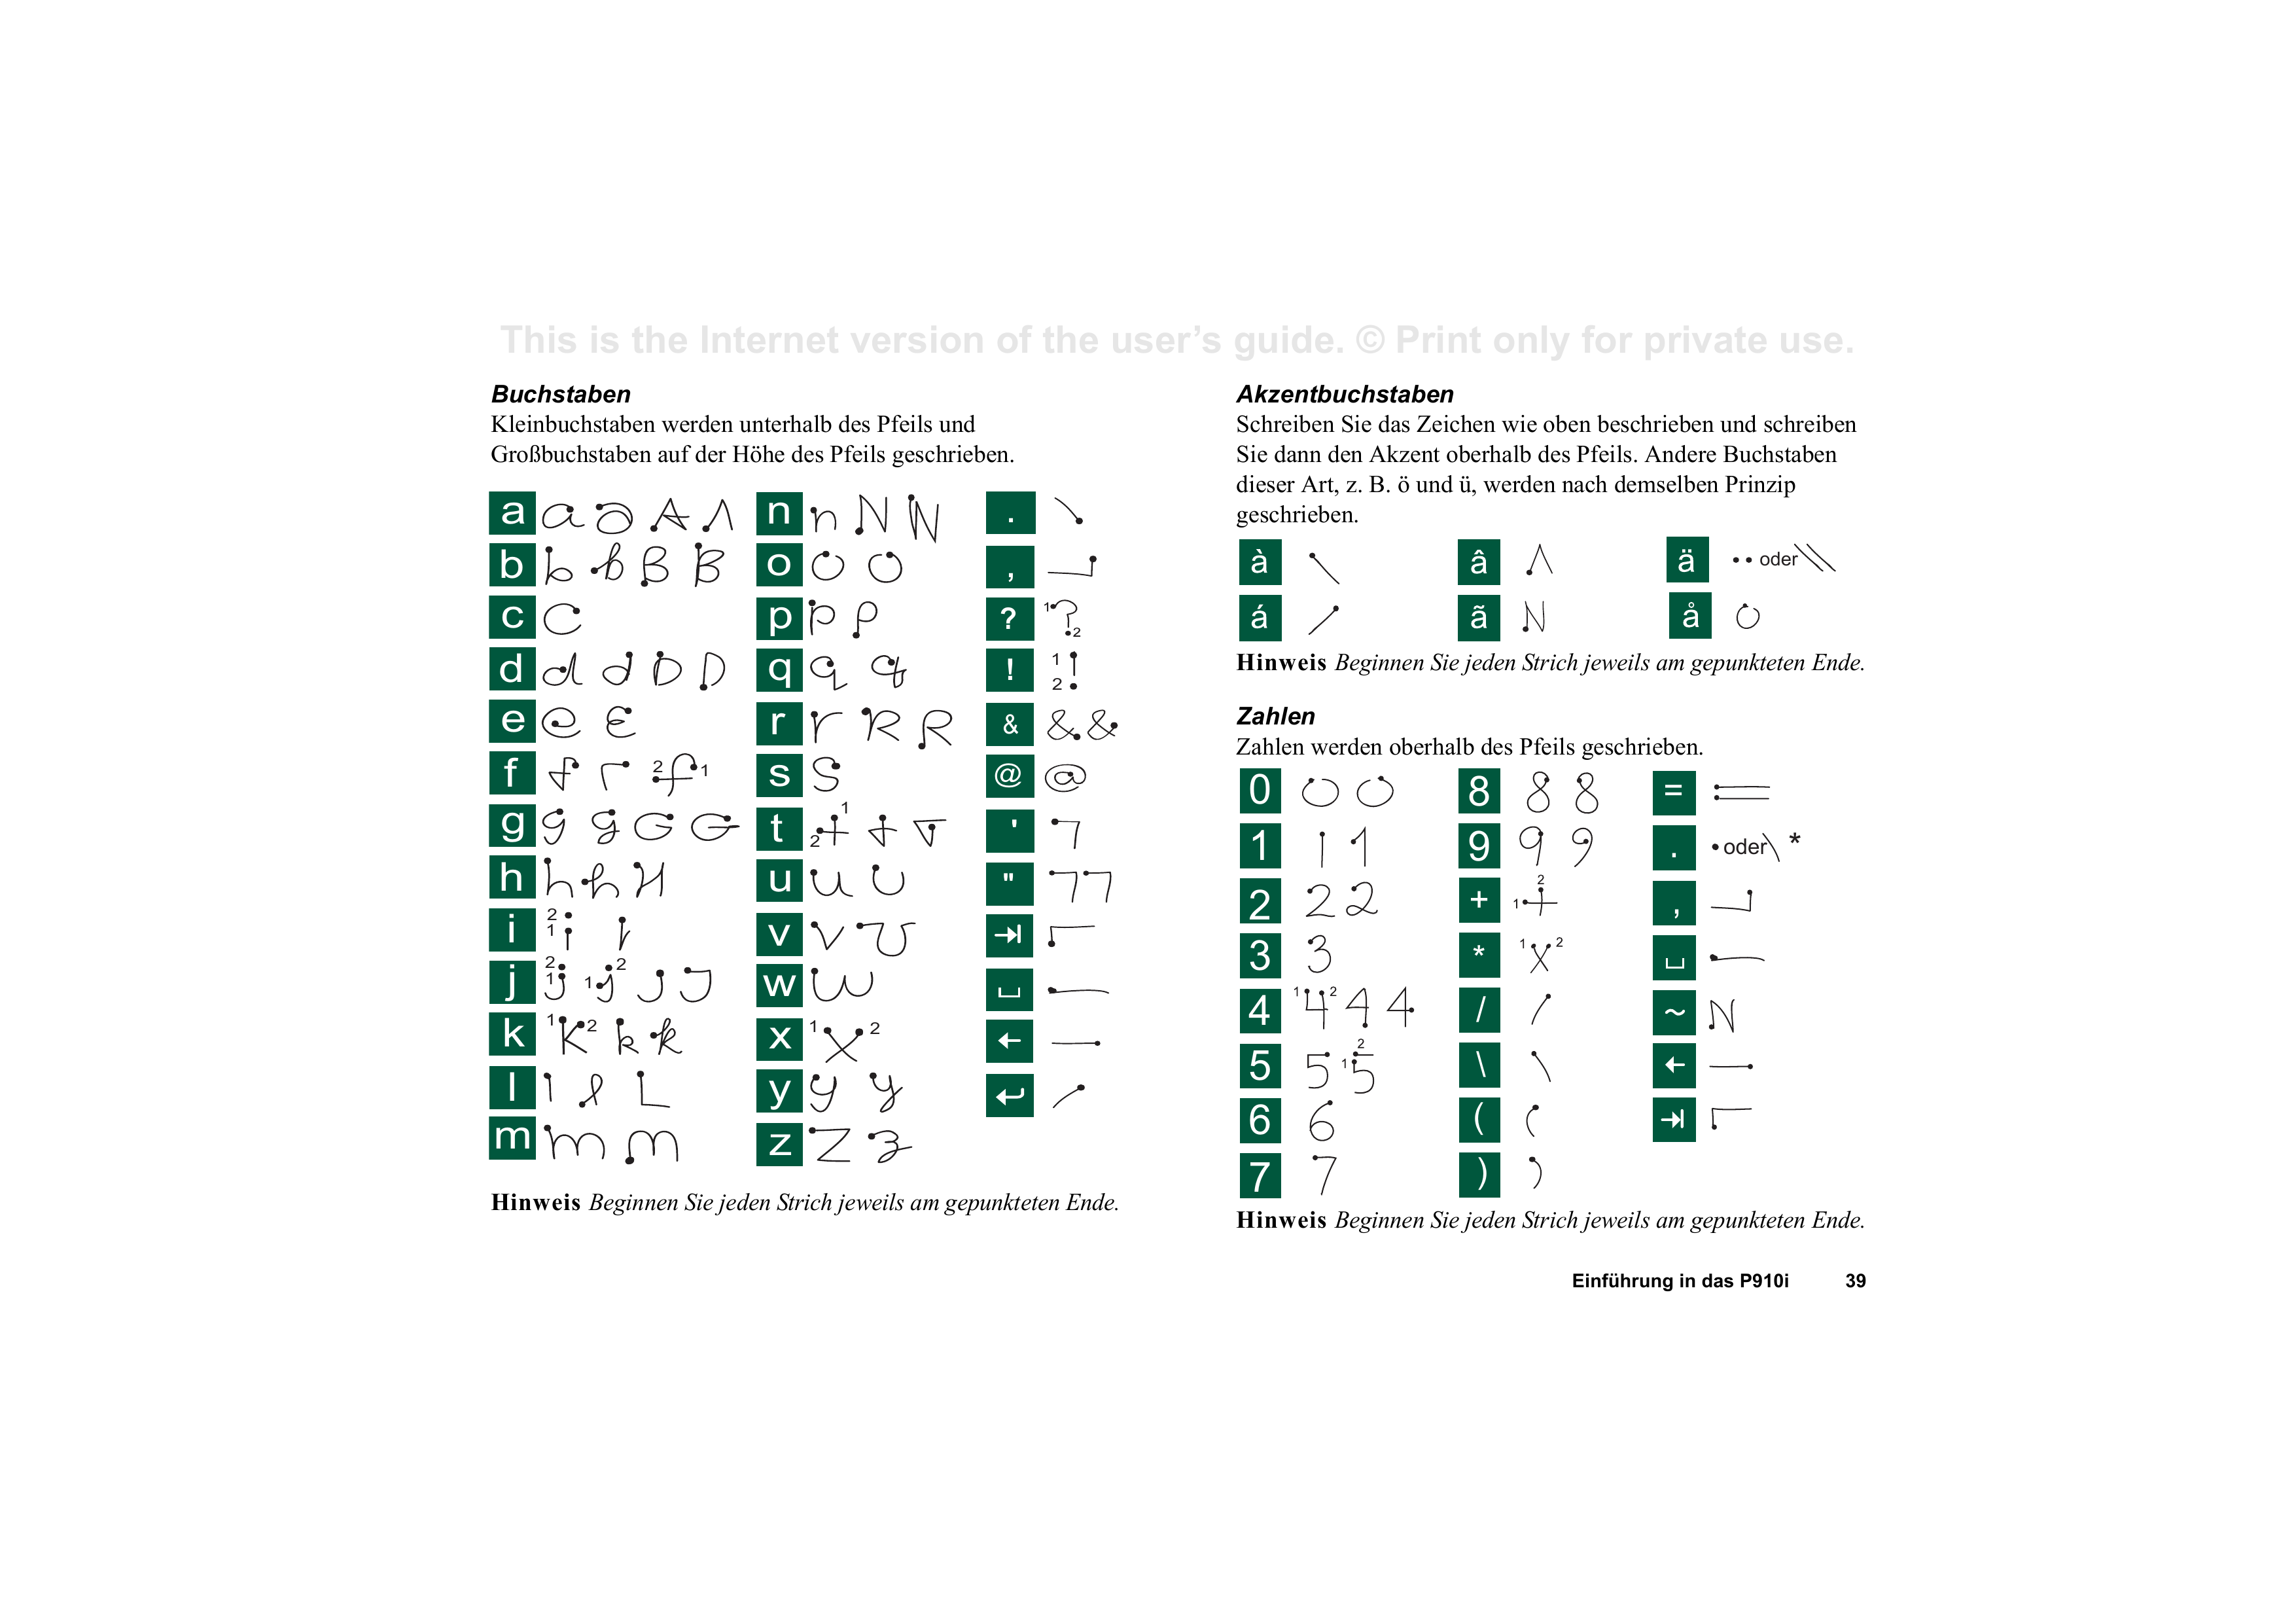 This is the Internet version of the user’s guide. © Print only for private use.
Buchstaben
Kleinbuchstaben werden unterhalb des Pfeils und
Großbuchstaben auf der Höhe des Pfeils geschrieben.
a n .
b o ,
c p ? 1 2
d q ! 1 2
e r &
f 2 1 s @
g t 1 2 '
h u "
i 2 1 v
j 2 1 1 2 w
k 1 2 x 1 2
l y
m z
Hinweis Beginnen Sie jeden Strich jeweils am gepunkteten Ende.
Akzentbuchstaben
Schreiben Sie das Zeichen wie oben beschrieben und schreiben
Sie dann den Akzent oberhalb des Pfeils. Andere Buchstaben
dieser Art, z. B. ö und ü, werden nach demselben Prinzip
geschrieben.
à â ä oder
á ã å
Hinweis Beginnen Sie jeden Strich jeweils am gepunkteten Ende.
Zahlen
Zahlen werden oberhalb des Pfeils geschrieben.
0 8 =
1 9 . oder *
2 + 1 2 ,
3 * 1 2
4 1 2 / ~
5 1 2 \
6 (
7 )
Hinweis Beginnen Sie jeden Strich jeweils am gepunkteten Ende.
Einführung in das P910i 39